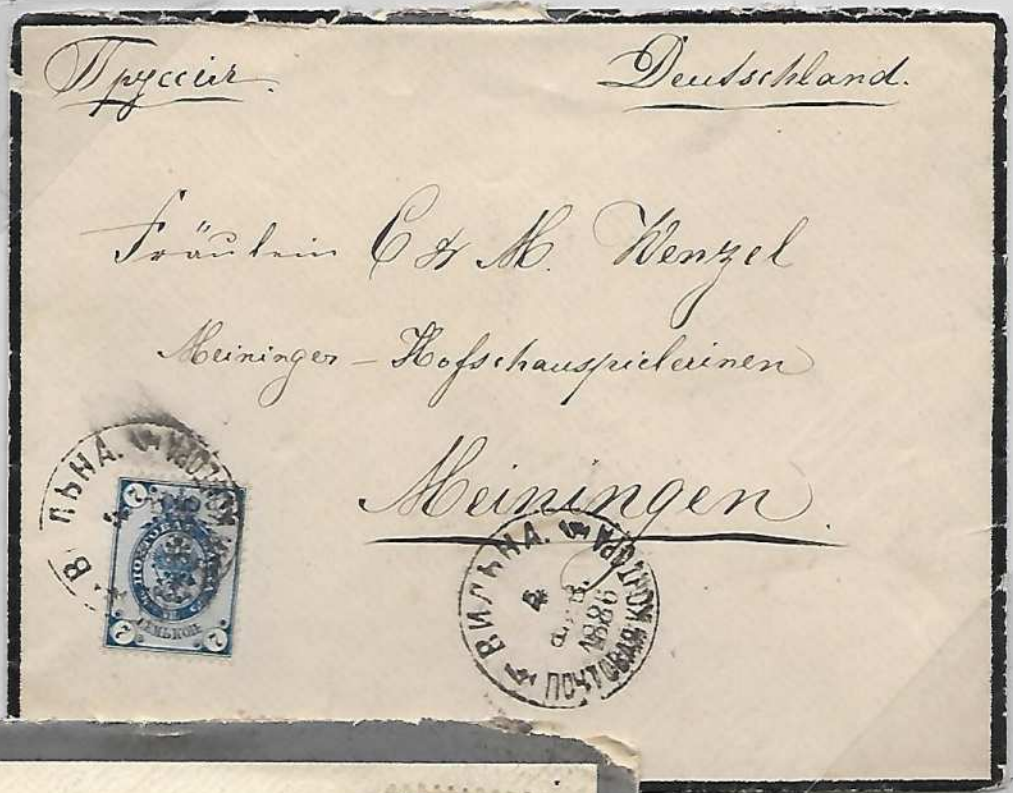 Пруссія. Deutschland.
Fräulein C & M. Wenzel
Meininger - Hofschauspielerinen
Meiningen.
ВИЛЬНА. ПОЧТОВАЯ КОНТОРА
7 7
СЕМЬ КОП.
7 7
ВИЛЬНА. ПОЧТОВАЯ КОНТОРА
4
ФЕВ.
1886